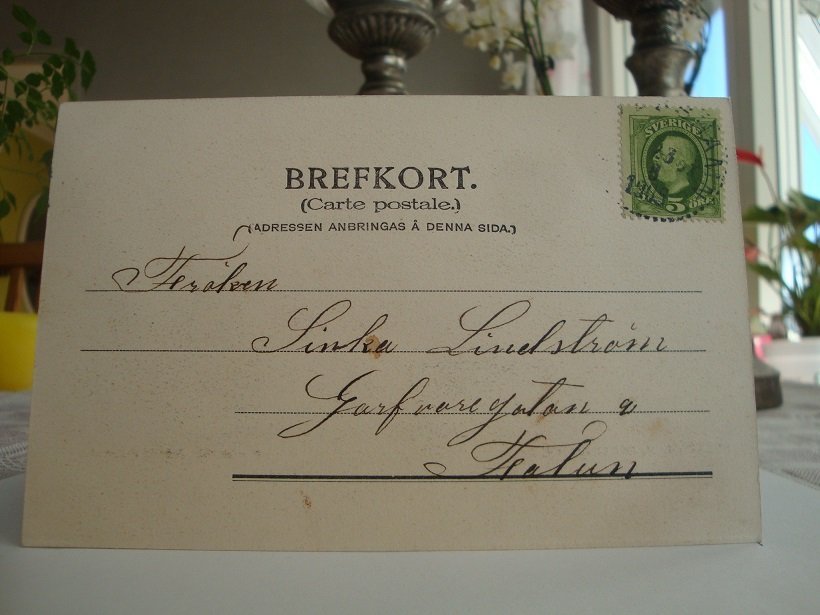 BREFKORT.
(Carte postale.)
(ADRESSEN ANBRINGAS Å DENNA SIDA.)
SVERIGE
5 ÖRE
Fröken
Sinka Lindström
Garfvaregatan 9
Falun